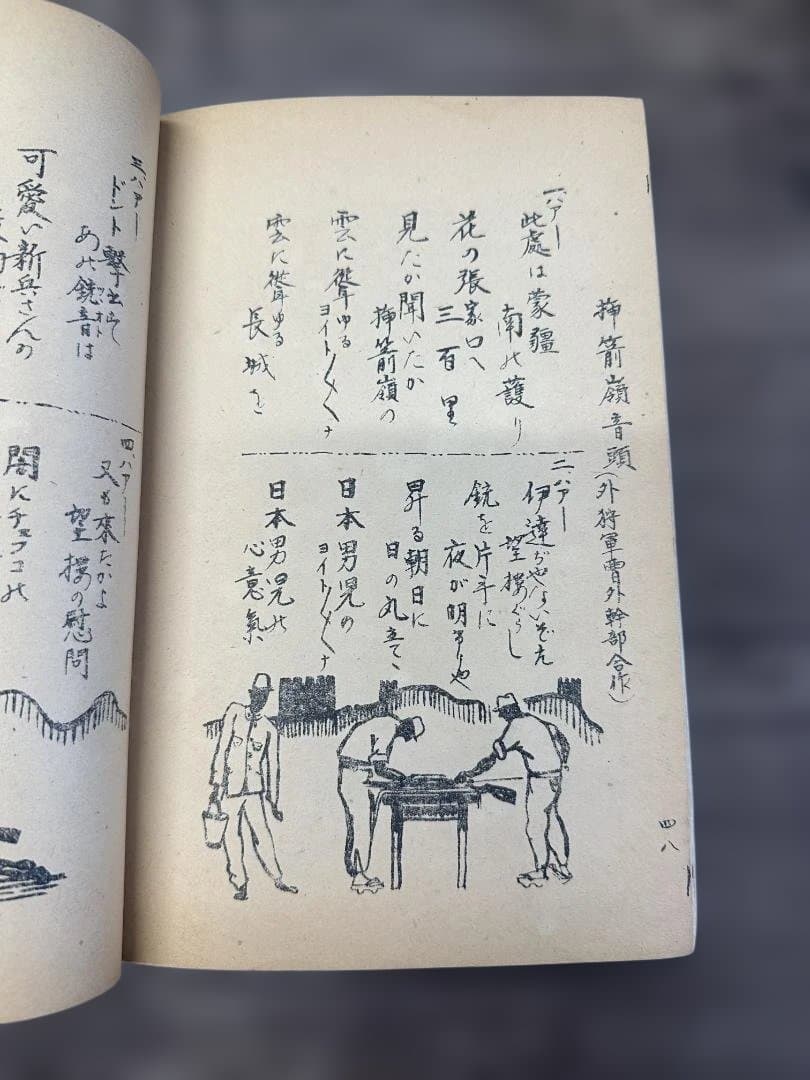 挿箭嶺音頭(外狩軍曹外幹部合作)
一、ハアー
此處は蒙疆
南の護り
花の張家口へ
三百里
見たか聞いたか
挿箭嶺の
雲に聳ゆる
ヨイトノ〳〵ナ
雲に聳ゆる
長城を
二、ハアー
伊達ぢやないぞえ
望樓ぐらし
銃を片手に
夜が明りや
昇る朝日に
日の丸立てゝ
日本男児の
ヨイトノ〳〵ナ
日本男児の
心意氣
四八
三、ハアー
ドント撃出して
あの銃音は
可愛い新兵さんの
四、ハアー
又も來たかよ
望樓の慰問
闇にチェッコの